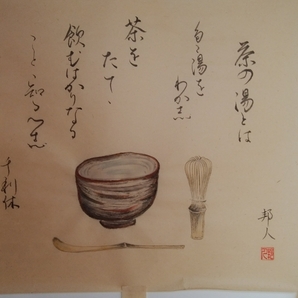 茶の湯とは
たゞ湯をわかし
茶を
たてゝ
飲むはかりなる
ことゝ知るへし
千利休
邦人